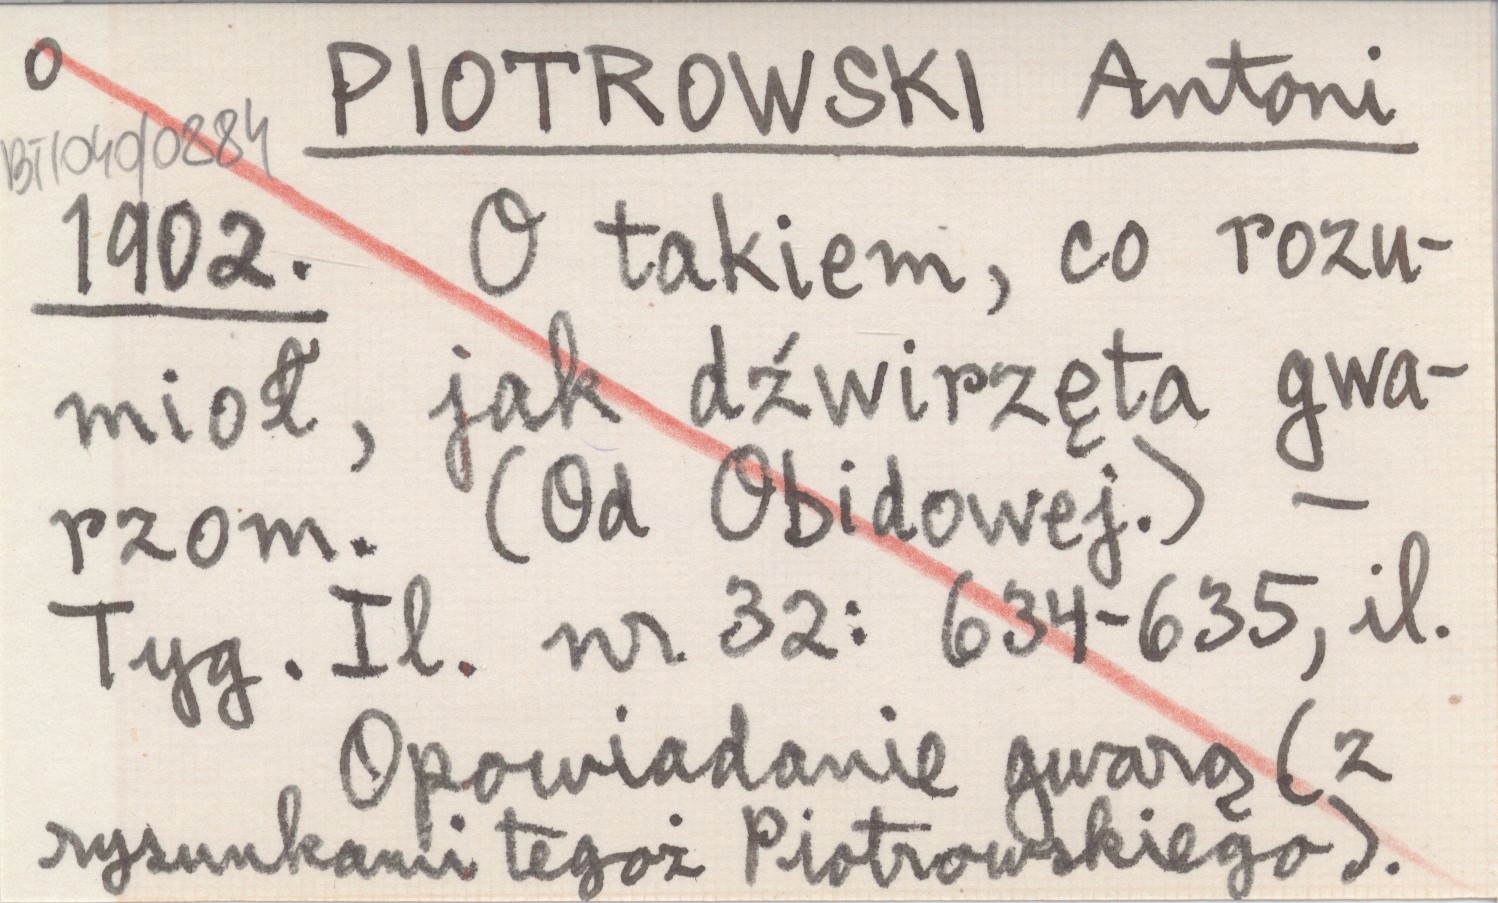 o PIOTROWSKI Antoni
BT/040/0284
1902. O takiem, co rozu-
mioł, jak dźwirzęta gwa-
rzom. (Od Obidowej.) –
Tyg. Il. nr 32: 634-635, il.
Opowiadanie gwarą (z
rysunkami tegoż Piotrowskiego).